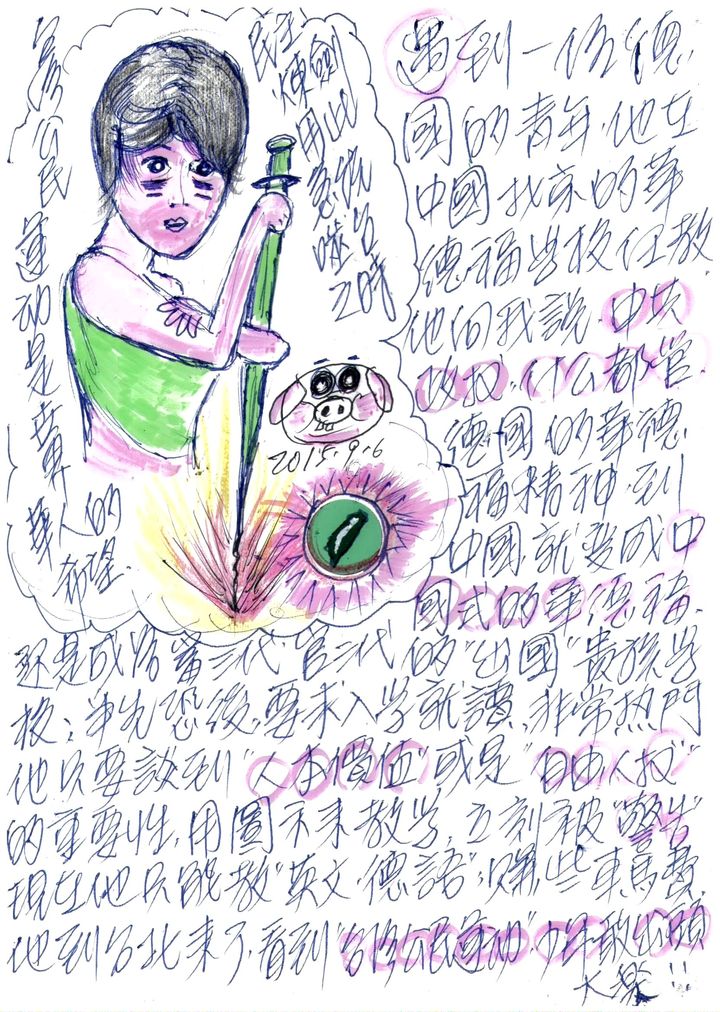 遇到一位德
國的青年,他在
中國北京的華
德福學校任教
他向我說,中共
政權,什么都管
德國的華德
福精神,到
中國,就變成中
國式的華德福,
還是成為富二代、官二代的"出國"貴族學
校;爭先恐後,要求入學就讀,非常热門
他只要談到"人本價值"或是"自由人权"
的重要性,用圖示來教学,立刻被"警告"
現在他只能教"英文、德語",賺些車馬費,
他到台北來了,看到"台灣公民運动",少年敢出頭
大樂!!
民主
煉劍
用此
台灣公民運动是
華人的
希望
2015.9.6